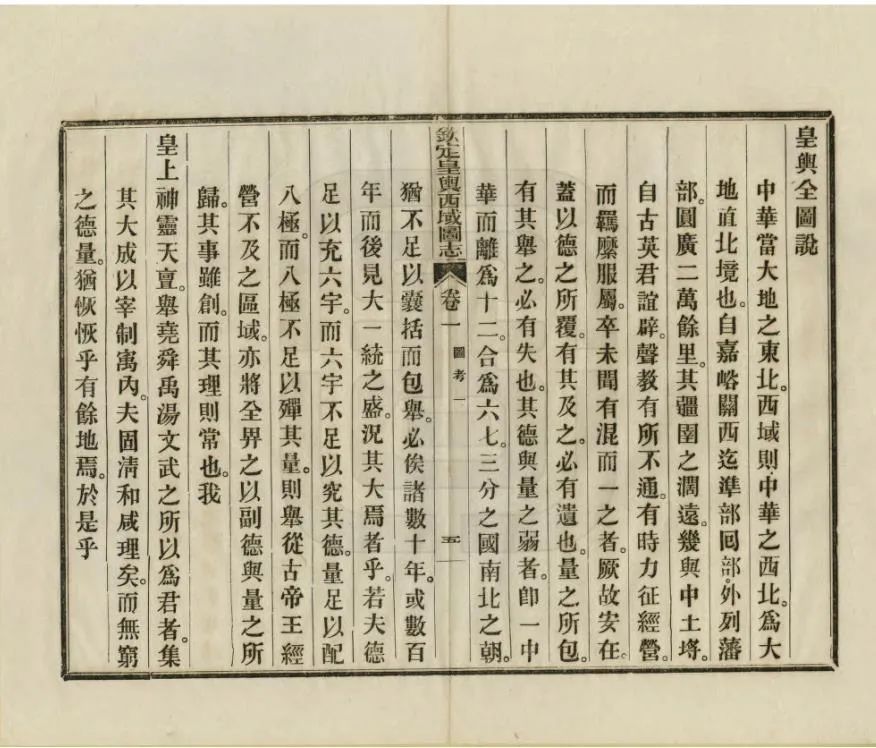 皇輿全圖說
中華當大地之東北。西域則中華之西北。爲大
地直北境也。自嘉峪關西迄準部回部。外列藩
部。圓廣二萬餘里。其疆圉之濶遠。幾與中土埒。
自古英君誼辟。聲教有所不通。有時力征經營。
而羈縻服屬。卒未聞有混而一之者。厥故安在。
蓋以德之所覆。有其及之。必有遺也。量之所包。
有其舉之。必有失也。其德與量之弱者。卽一中
華而離爲十二。合爲六七。三分之國南北之朝。
欽定皇輿西域圖志
卷一
圖考一
五
猶不足以囊括而包舉。必俟諸數十年。或數百
年而後見大一統之盛。況其大焉者乎。若夫德
足以充六宇。而六宇不足以究其德。量足以配
八極。而八極不足以殫其量。則舉從古帝王經
營不及之區域。亦將全畀之以副德與量之所
歸。其事雖創。而其理則常也。我
皇上神靈天亶。舉堯舜禹湯文武之所以爲君者。集
其大成以宰制寓內。夫固淸和咸理矣。而無窮
之德量。猶恢恢乎有餘地焉。於是乎